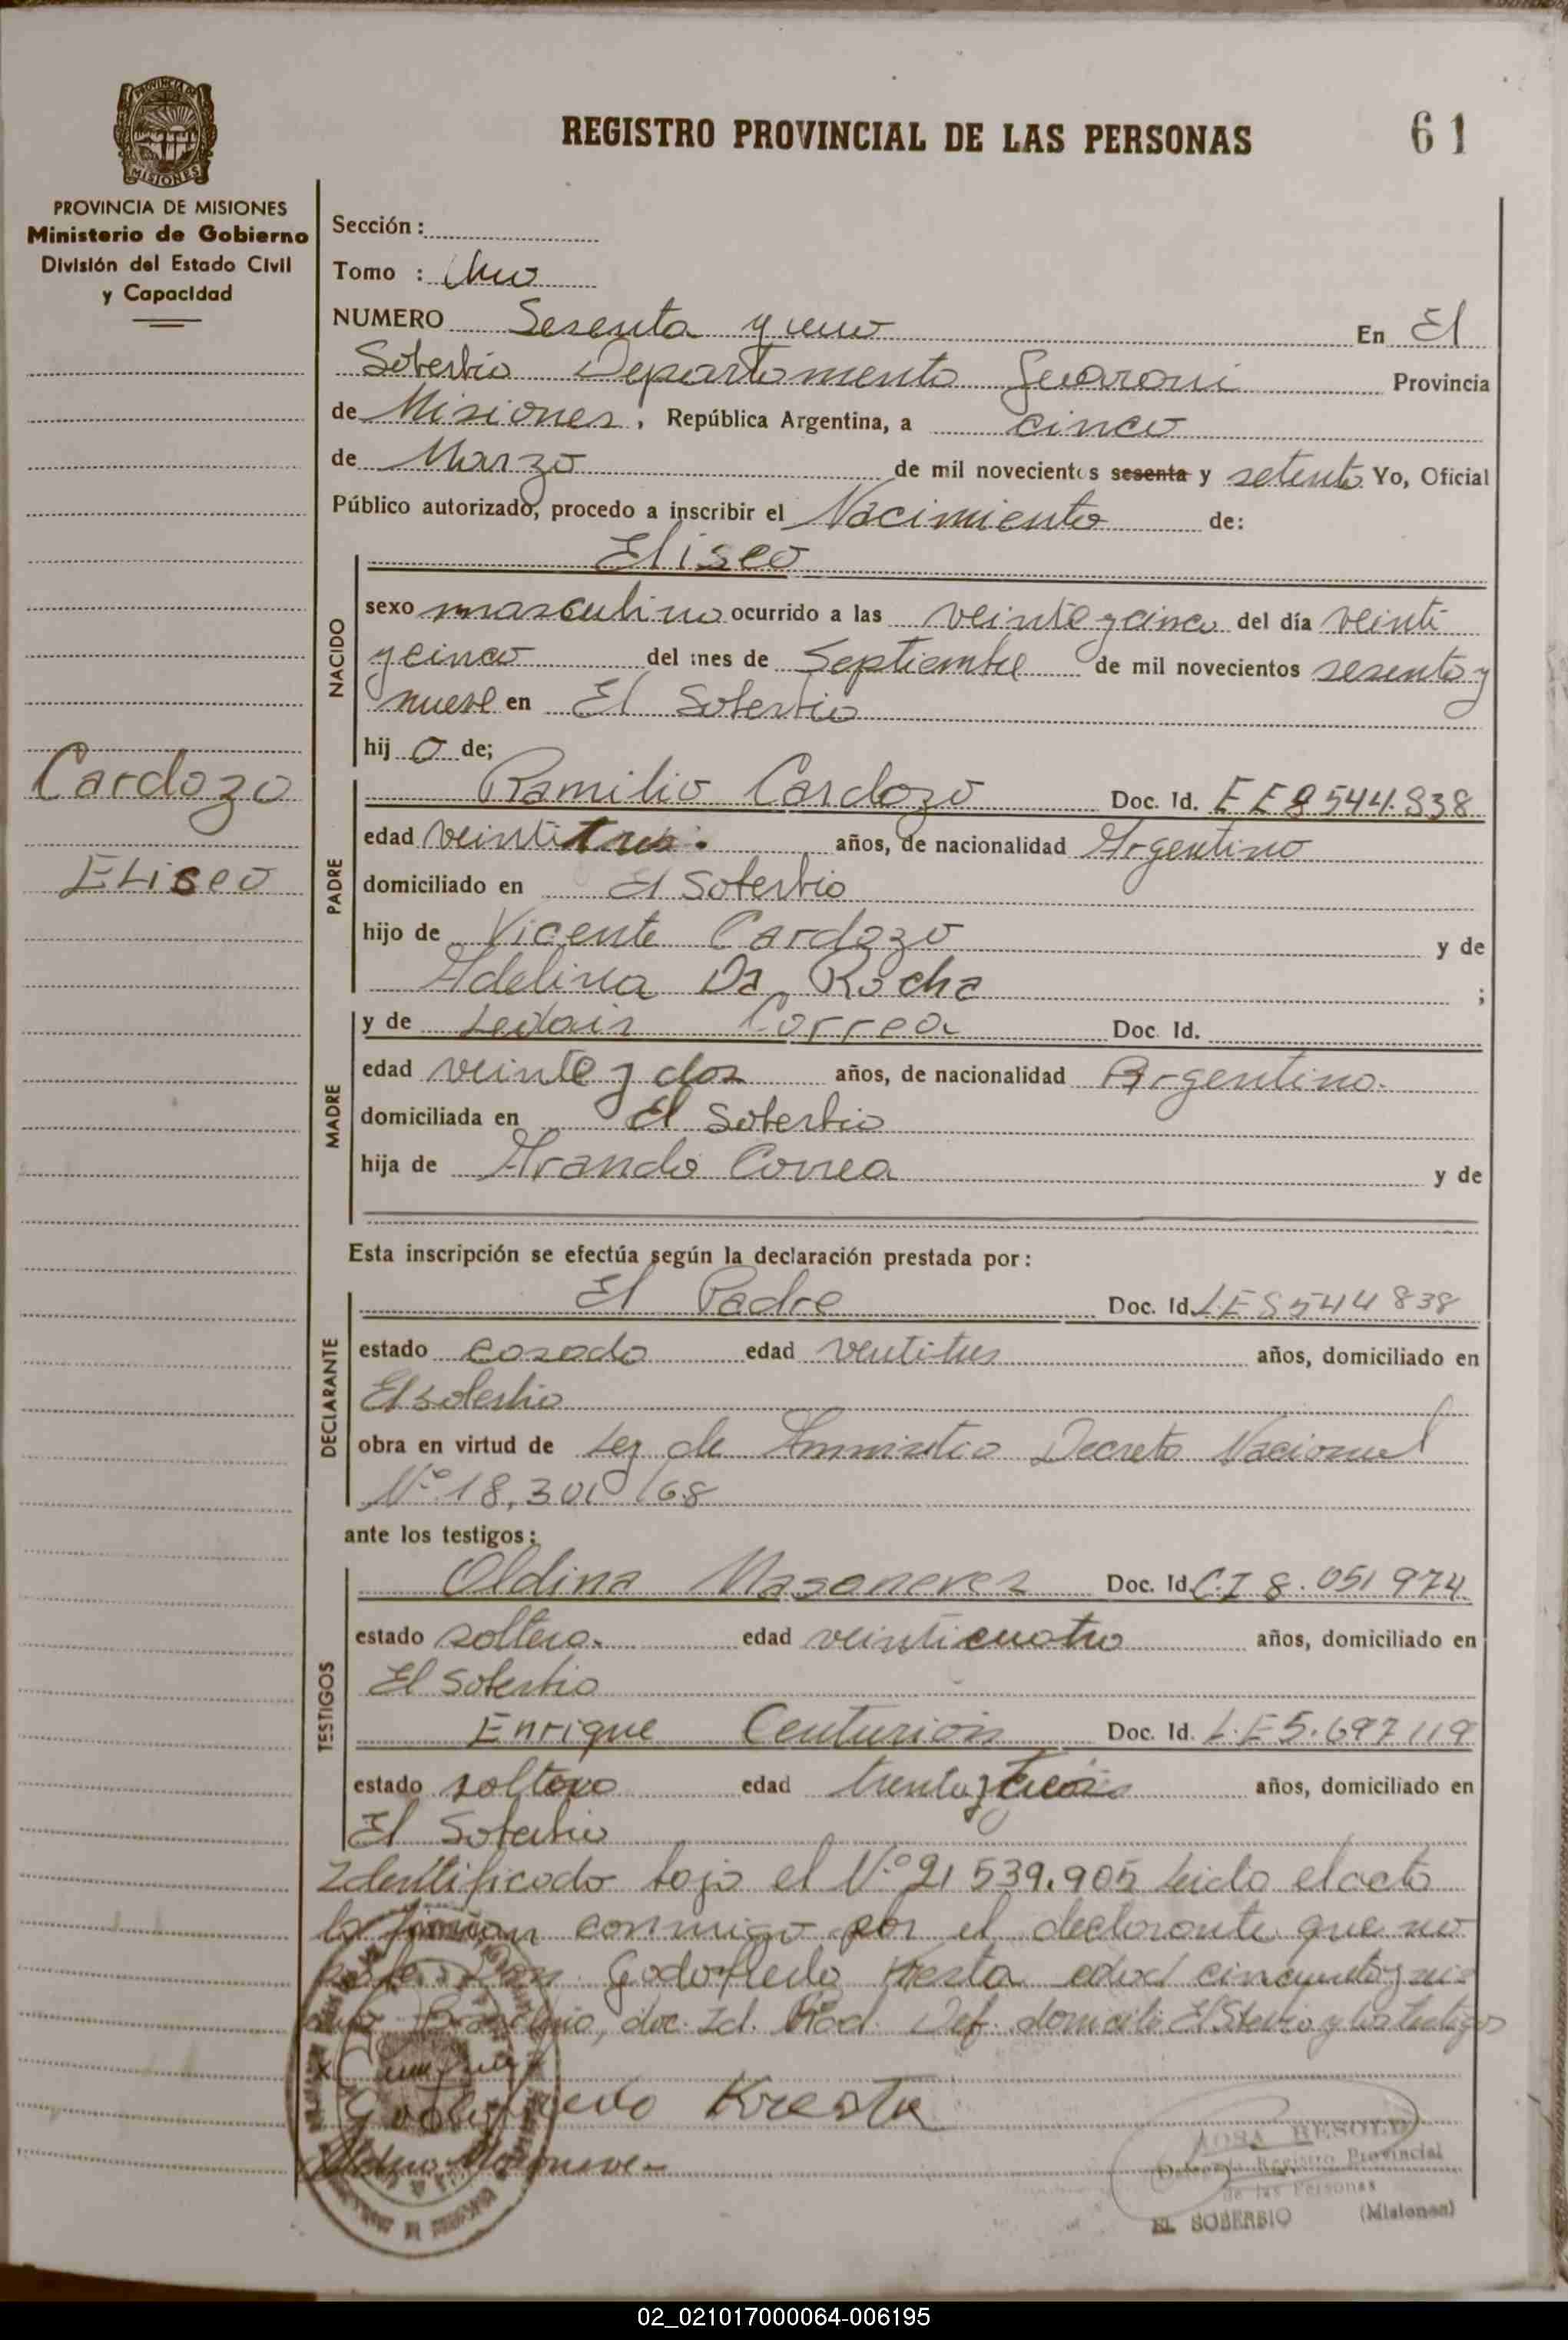 PROVINCIA DE
MISIONES
PROVINCIA DE MISIONES
Ministerio de Gobierno
División del Estado Civil
y Capacidad
Cardozo
Eliseo
REGISTRO PROVINCIAL DE LAS PERSONAS
61
Sección:
Tomo : Uno
NUMERO Sesenta y uno En El
Soberbio Departamento Guarani Provincia
de Misiones, República Argentina, a cinco
de Marzo de mil novecientos sesenta y setenta Yo, Oficial
Público autorizado, procedo a inscribir el Nacimiento de:
NACIDO
Eliseo
sexo masculino ocurrido a las veinte y cinco del día veinti
y cinco del mes de Septiembre de mil novecientos sesenta y
nueve en El Soberbio
hij o de;
PADRE
Ramilio Cardozo Doc. Id. EE8544.838
edad veintitres. años, de nacionalidad Argentino
domiciliado en El Soberbio
hijo de Vicente Cardozo y de
Adelina Da Rocha ;
MADRE
y de Correa Doc. Id.
edad veinte y dos años, de nacionalidad Argentino.
domiciliada en El Soberbio
hija de Arando Correa y de
Esta inscripción se efectúa según la declaración prestada por:
DECLARANTE
El Padre Doc. Id. L.E 8544838
estado casado edad ventitres años, domiciliado en
El soberbio
obra en virtud de Ley de Amnistia Decreto Nacional
Nº 18,301/68
ante los testigos:
TESTIGOS
Oldina Doc. Id. C.I 8.051974
estado soltera. edad veinticuatro años, domiciliado en
El Soberbio
Enrique Centurion Doc. Id. L.E 5.697119
estado soltero edad treinta y tres años, domiciliado en
El Soberbio
Identificado bajo el Nº 21 539.905 leido el acto
la firman conmigo por el declarante que no
Godofredo Kresta edad cincuenta y
doc. Id. Def. domicilio El Soberbio y los testigos
Godofredo Kresta
ROSA RESOLD
Registro Provincial
de las Personas
EL SOBERBIO (Misiones)
02_021017000064-006195